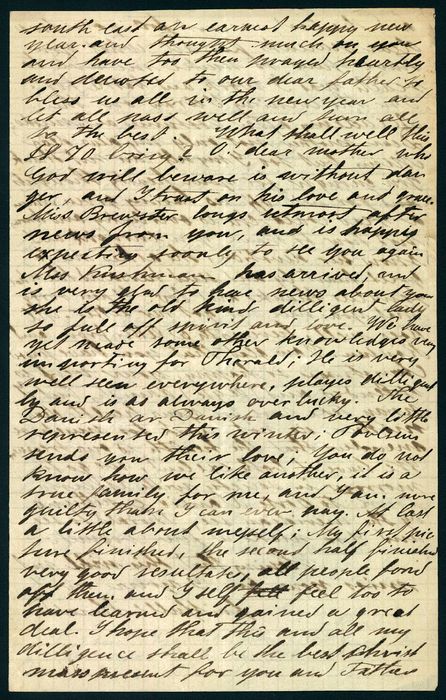 south east an earnest happy new
year. and thought much on you
and have too then prayed heartly
and devoted to our dear father to
bless us all in the new year and
let all pass well and turn all
to the best. What shall well this
1870 bring? O! dear mother, who
God will beware is without dan
ger, and I trust on his love and grace.
Miss Brewster longs utmost after
news from you, and is happy
expecting soonly to see you again
Miss Cushman has arrived and
is very glad to have news about you
she is the old kind, dilligent lady
so full off spirit and love. We have
yet made some other knowledges very
importing for Tharald; He is very
well seen everywhere, playes dilligent
ly and is as always over lucky. The
Danish are Danish and very little
represented this winter;
sends you their love; You do not
know how we like another, it is a
true family for me, and I am more
guilty than I can ever pay. At last
a little about meyself; My first pic
ture finished, the second half finished
very good resultate, all people fond
off them and I self feel too to
have learned and gained a great
deal. I hope that this and all my
dilligence shall be the best christ
maspresent for you and Father